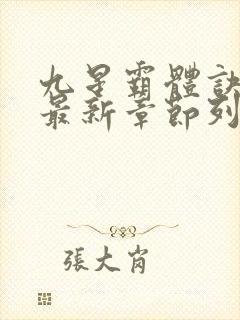 九星霸體訣
最新章節列
張大肖